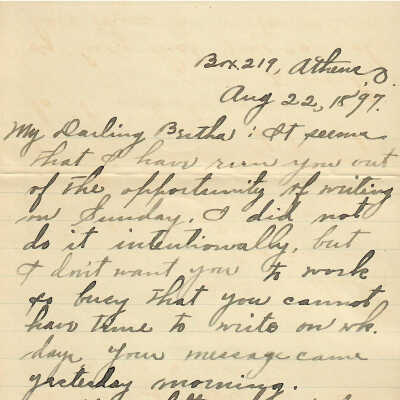 Box 219, Athens, O.
Aug 22, 1897.
My Darling Bertha: It seems
that I have run you out
of the opportunity of writing
on Sunday. I did not
do it intentionally, but
I don't want you to work
so busy that you cannot
have time to write on wk.
days. Your message came
yesterday morning.